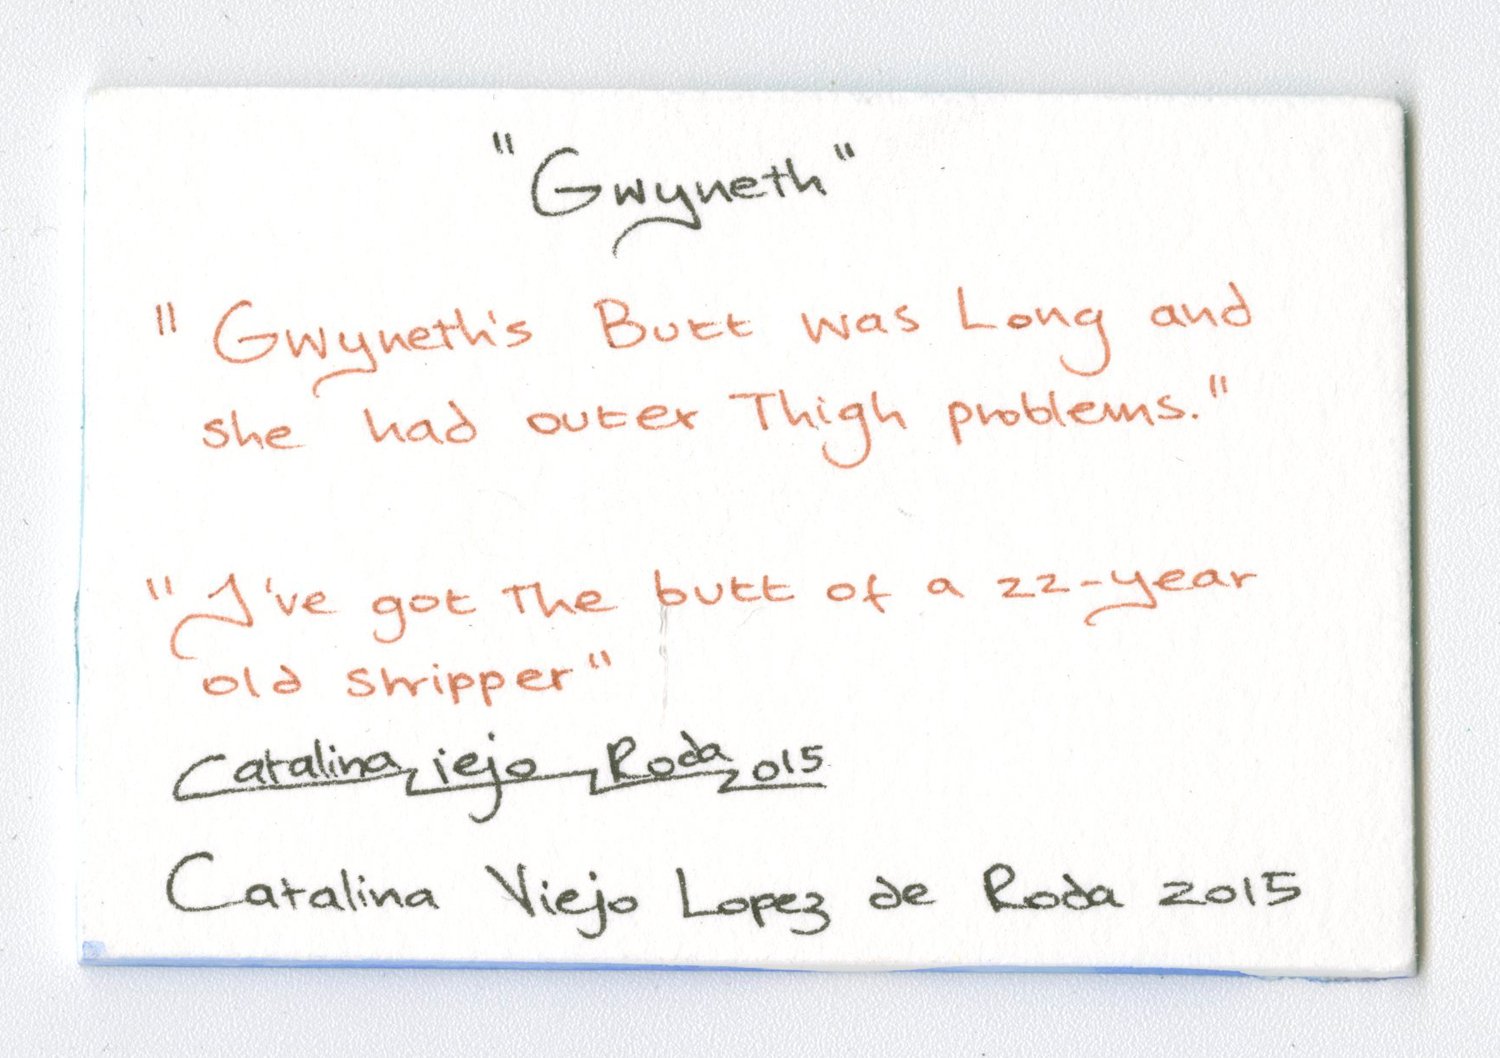 "Gwyneth"
"Gwyneth's Butt was Long and
she had outer Thigh problems."
"I've got The butt of a 22-year
old stripper"
Catalina Viejo Roda 2015
Catalina Viejo Lopez de Roda 2015